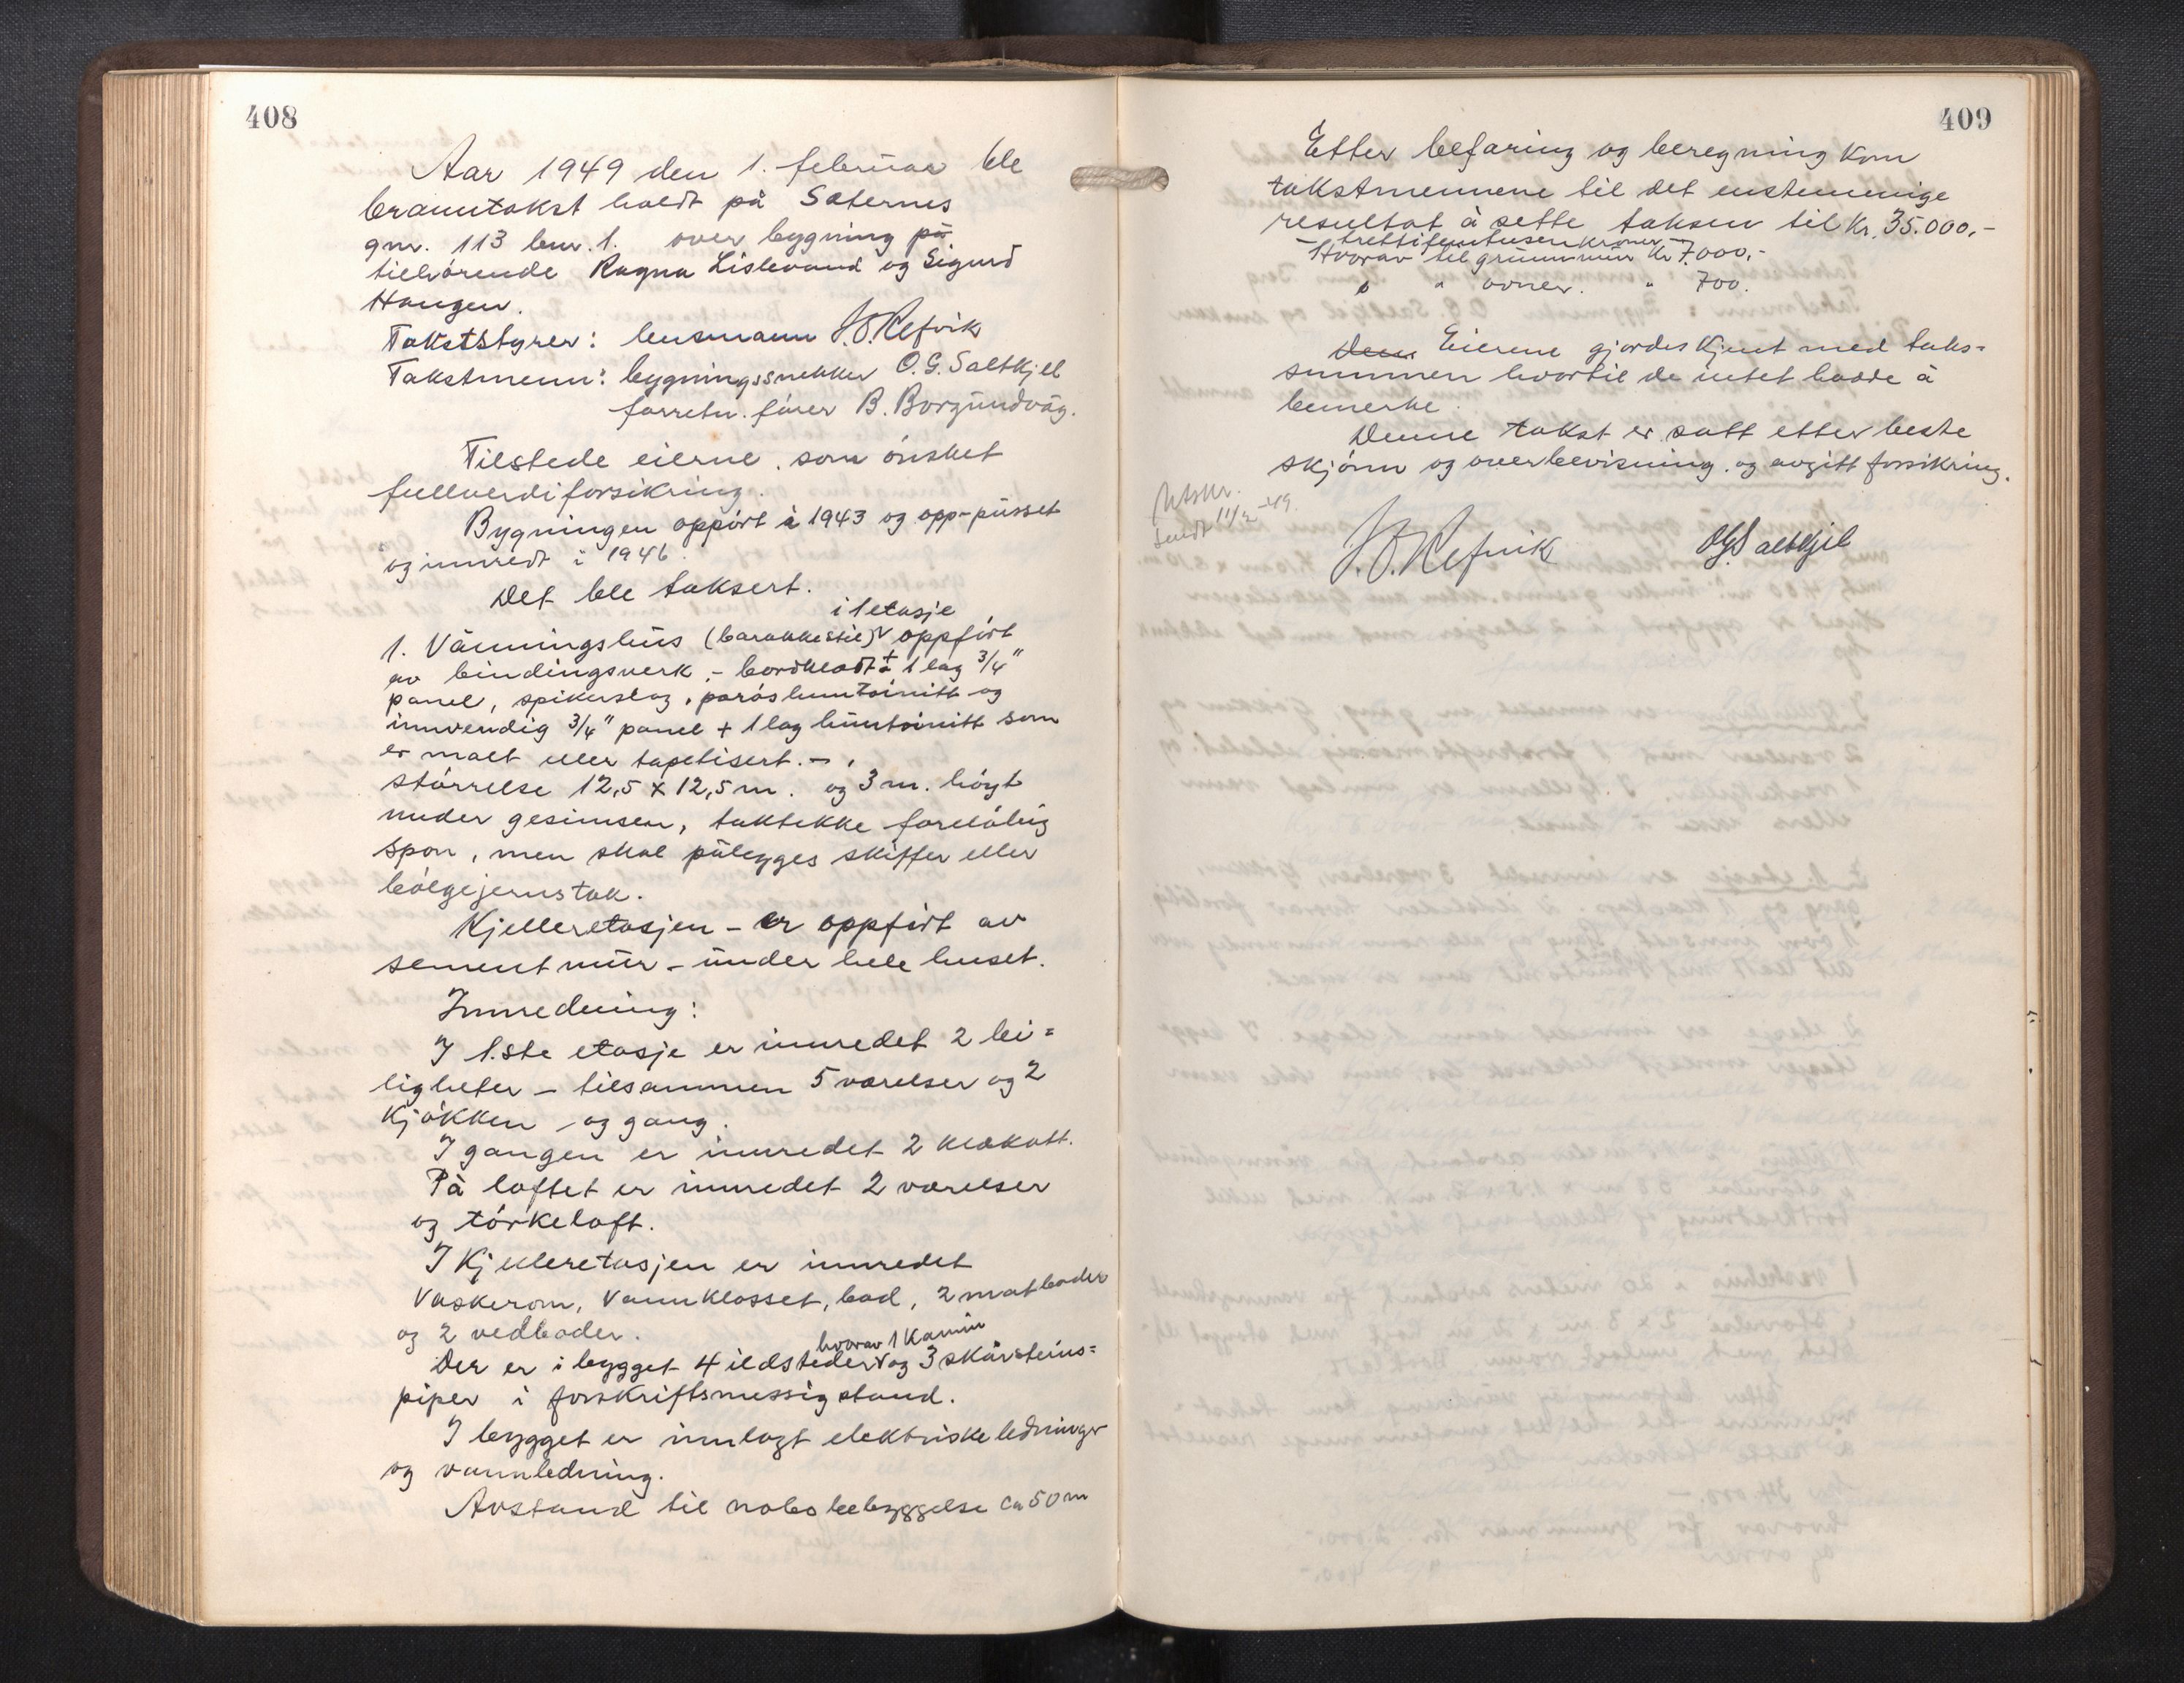 408
Aar 1949 den 1. februar ble
branntakst holdt på Sæternes
gnr. 113 bnr. 1. over bygning på
tilhørende Ragna Listevand og Sigurd
Haugen.
Takststyrer: lensmann J.O. Refvik
Takstmenn: bygningssnekker O.G. Saltkjel
forretn. fører B. Borgundvåg.
Tilstede eierne, som ønsket
fullverdiforsikring.
Bygningen oppført i 1943 og opp-pusset
og innredt i 1946.
Det ble taksert.
i 1 etasje
1. Våningshus (barakkestil) oppført
av bindingsverk, - bordkledt + 1 lag 3/4"
panel, spikerslag, porøs huntonitt og
innvendig 3/4" panel + 1 lag huntonitt som
er malt eller tapetisert. -
størrelse 12,5 x 12,5 m. og 3 m. høyt
under gesimsen, taktekke foreløbig
spon, men skal pålegges skiffer eller
bølgejernstak.
Kjelleretasjen - er oppført av
sement mur - under hele huset.
Innredning:
I 1.ste etasje er innredet 2 lei=
ligheter - tilsammen 5 værelser og 2
kjøkken - og gang.
I gangen er innredet 2 klekott.
På loftet er innredet 2 værelser
og tørkeloft.
I Kjelleretasjen er innredet
Vaskerom, Vannklosset, bad, 2 matboder
og 2 vedboder.
hvorav 1 Kamin
Der er i bygget 4 ildsteder og 3 skårsteins=
piper i forskriftsmessig stand.
I bygget er innlagt elektriske ledninger
og vannledning.
Avstand til nabobebyggelse ca 50 m
409
Etter befaring og beregning kom
takstmennene til det enstemmige
resultat å sette taksen til Kr. 35.000,-
- trettifemtusenkroner -
Hvorav til grunnmur Kr 7.000,-
" " ovner. " 700.
Den Eierene gjordes kjent med taks=
summen hvortil de intet hadde å
bemerke.
Denne takst er satt etter beste
skjønn og overbevisning og avgitt forsikring.
Utskr.
sendt 11/2 -49.
J.O. Refvik O.G. Saltkjel